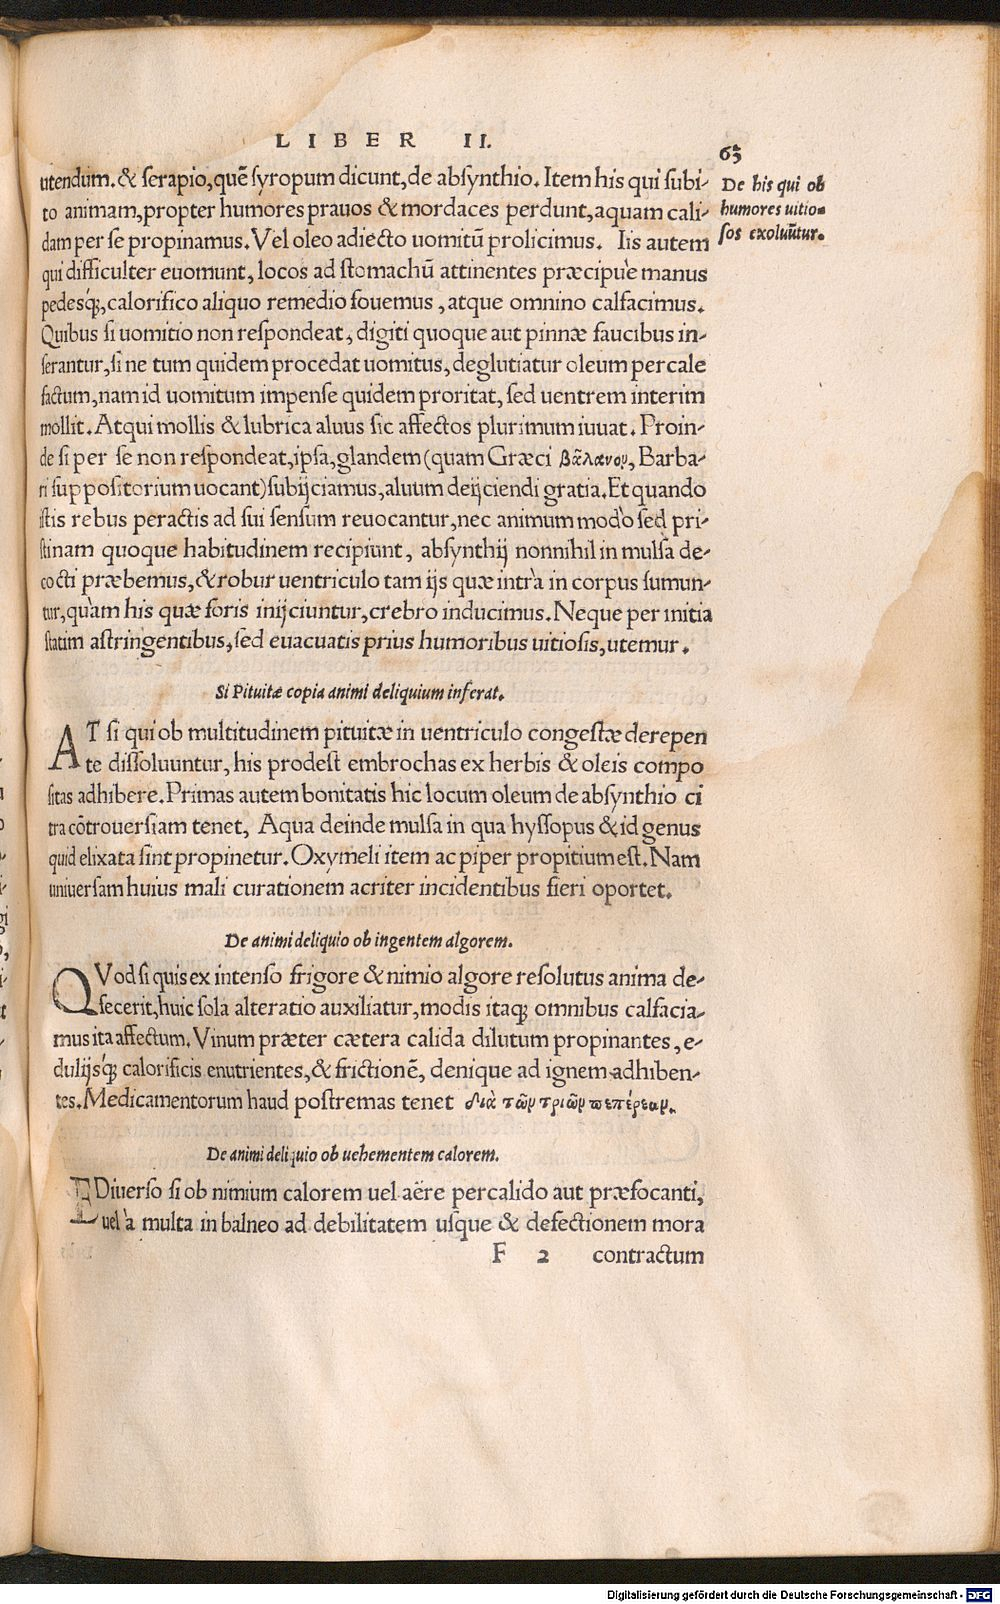 LIBER II.
63
utendum. & serapio, quẽ syropum dicunt, de absynthio. Item his qui subi-
to animam, propter humores prauos & mordaces perdunt, aquam cali-
dam per se propinamus. Vel oleo adiecto uomitũ prolicimus. Iis autem
qui difficulter euomunt, locos ad stomachũ attinentes præcipuè manus
pedesq́;, calorifico aliquo remedio fouemus, atque omnino calfacimus.
Quibus si uomitio non respondeat, digiti quoque aut pinnæ faucibus in-
serantur, si ne tum quidem procedat uomitus, deglutiatur oleum percale
factum, nam id uomitum impense quidem proritat, sed uentrem interim
mollit. Atqui mollis & lubrica aluus sic affectos plurimum iuuat. Proin-
de si per se non respondeat, ipsa, glandem (quam Græci βάλανον, Barba-
ri suppositorium uocant) subijciamus, aluum deijciendi gratia. Et quando
istis rebus peractis ad sui sensum reuocantur, nec animum modò sed pri-
stinam quoque habitudinem recipiunt, absynthij nonnihil in mulsa de-
cocti præbemus, & robur uentriculo tam ijs quæ intrà in corpus sumun-
tur, quàm his quæ foris inijciuntur, crebro inducimus. Neque per initia
statim astringentibus, sed euacuatis prius humoribus uitiosis, utemur.
De his qui ob
humores uitio-
sos exoluũtur.
Si Pituitæ copia animi deliquium inferat.
AT si qui ob multitudinem pituitæ in uentriculo congestæ derepen
te dissoluuntur, his prodest embrochas ex herbis & oleis compo
sitas adhibere. Primas autem bonitatis hic locum oleum de absynthio ci
tra cõtrouersiam tenet, Aqua deinde mulsa in qua hyssopus & id genus
quid elixata sint propinetur. Oxymeli item ac piper propitium est. Nam
uniuersam huius mali curationem acriter incidentibus fieri oportet.
De animi deliquio ob ingentem algorem.
QVod si quis ex intenso frigore & nimio algore resolutus anima de-
fecerit, huic sola alteratio auxiliatur, modis itaq; omnibus calfacia-
mus ita affectum. Vinum præter cætera calida dilutum propinantes, e-
dulijsq́; calorificis enutrientes, & frictionẽ, denique ad ignem adhiben-
tes. Medicamentorum haud postremas tenet διὰ τῶν τριῶν πεπέρεων.
De animi deliquio ob uehementem calorem.
EDiuerso si ob nimium calorem uel aëre percalido aut præfocanti,
uel à multa in balneo ad debilitatem usque & defectionem mora
F 2 contractum
Digitalisierung gefördert durch die Deutsche Forschungsgemeinschaft - DFG